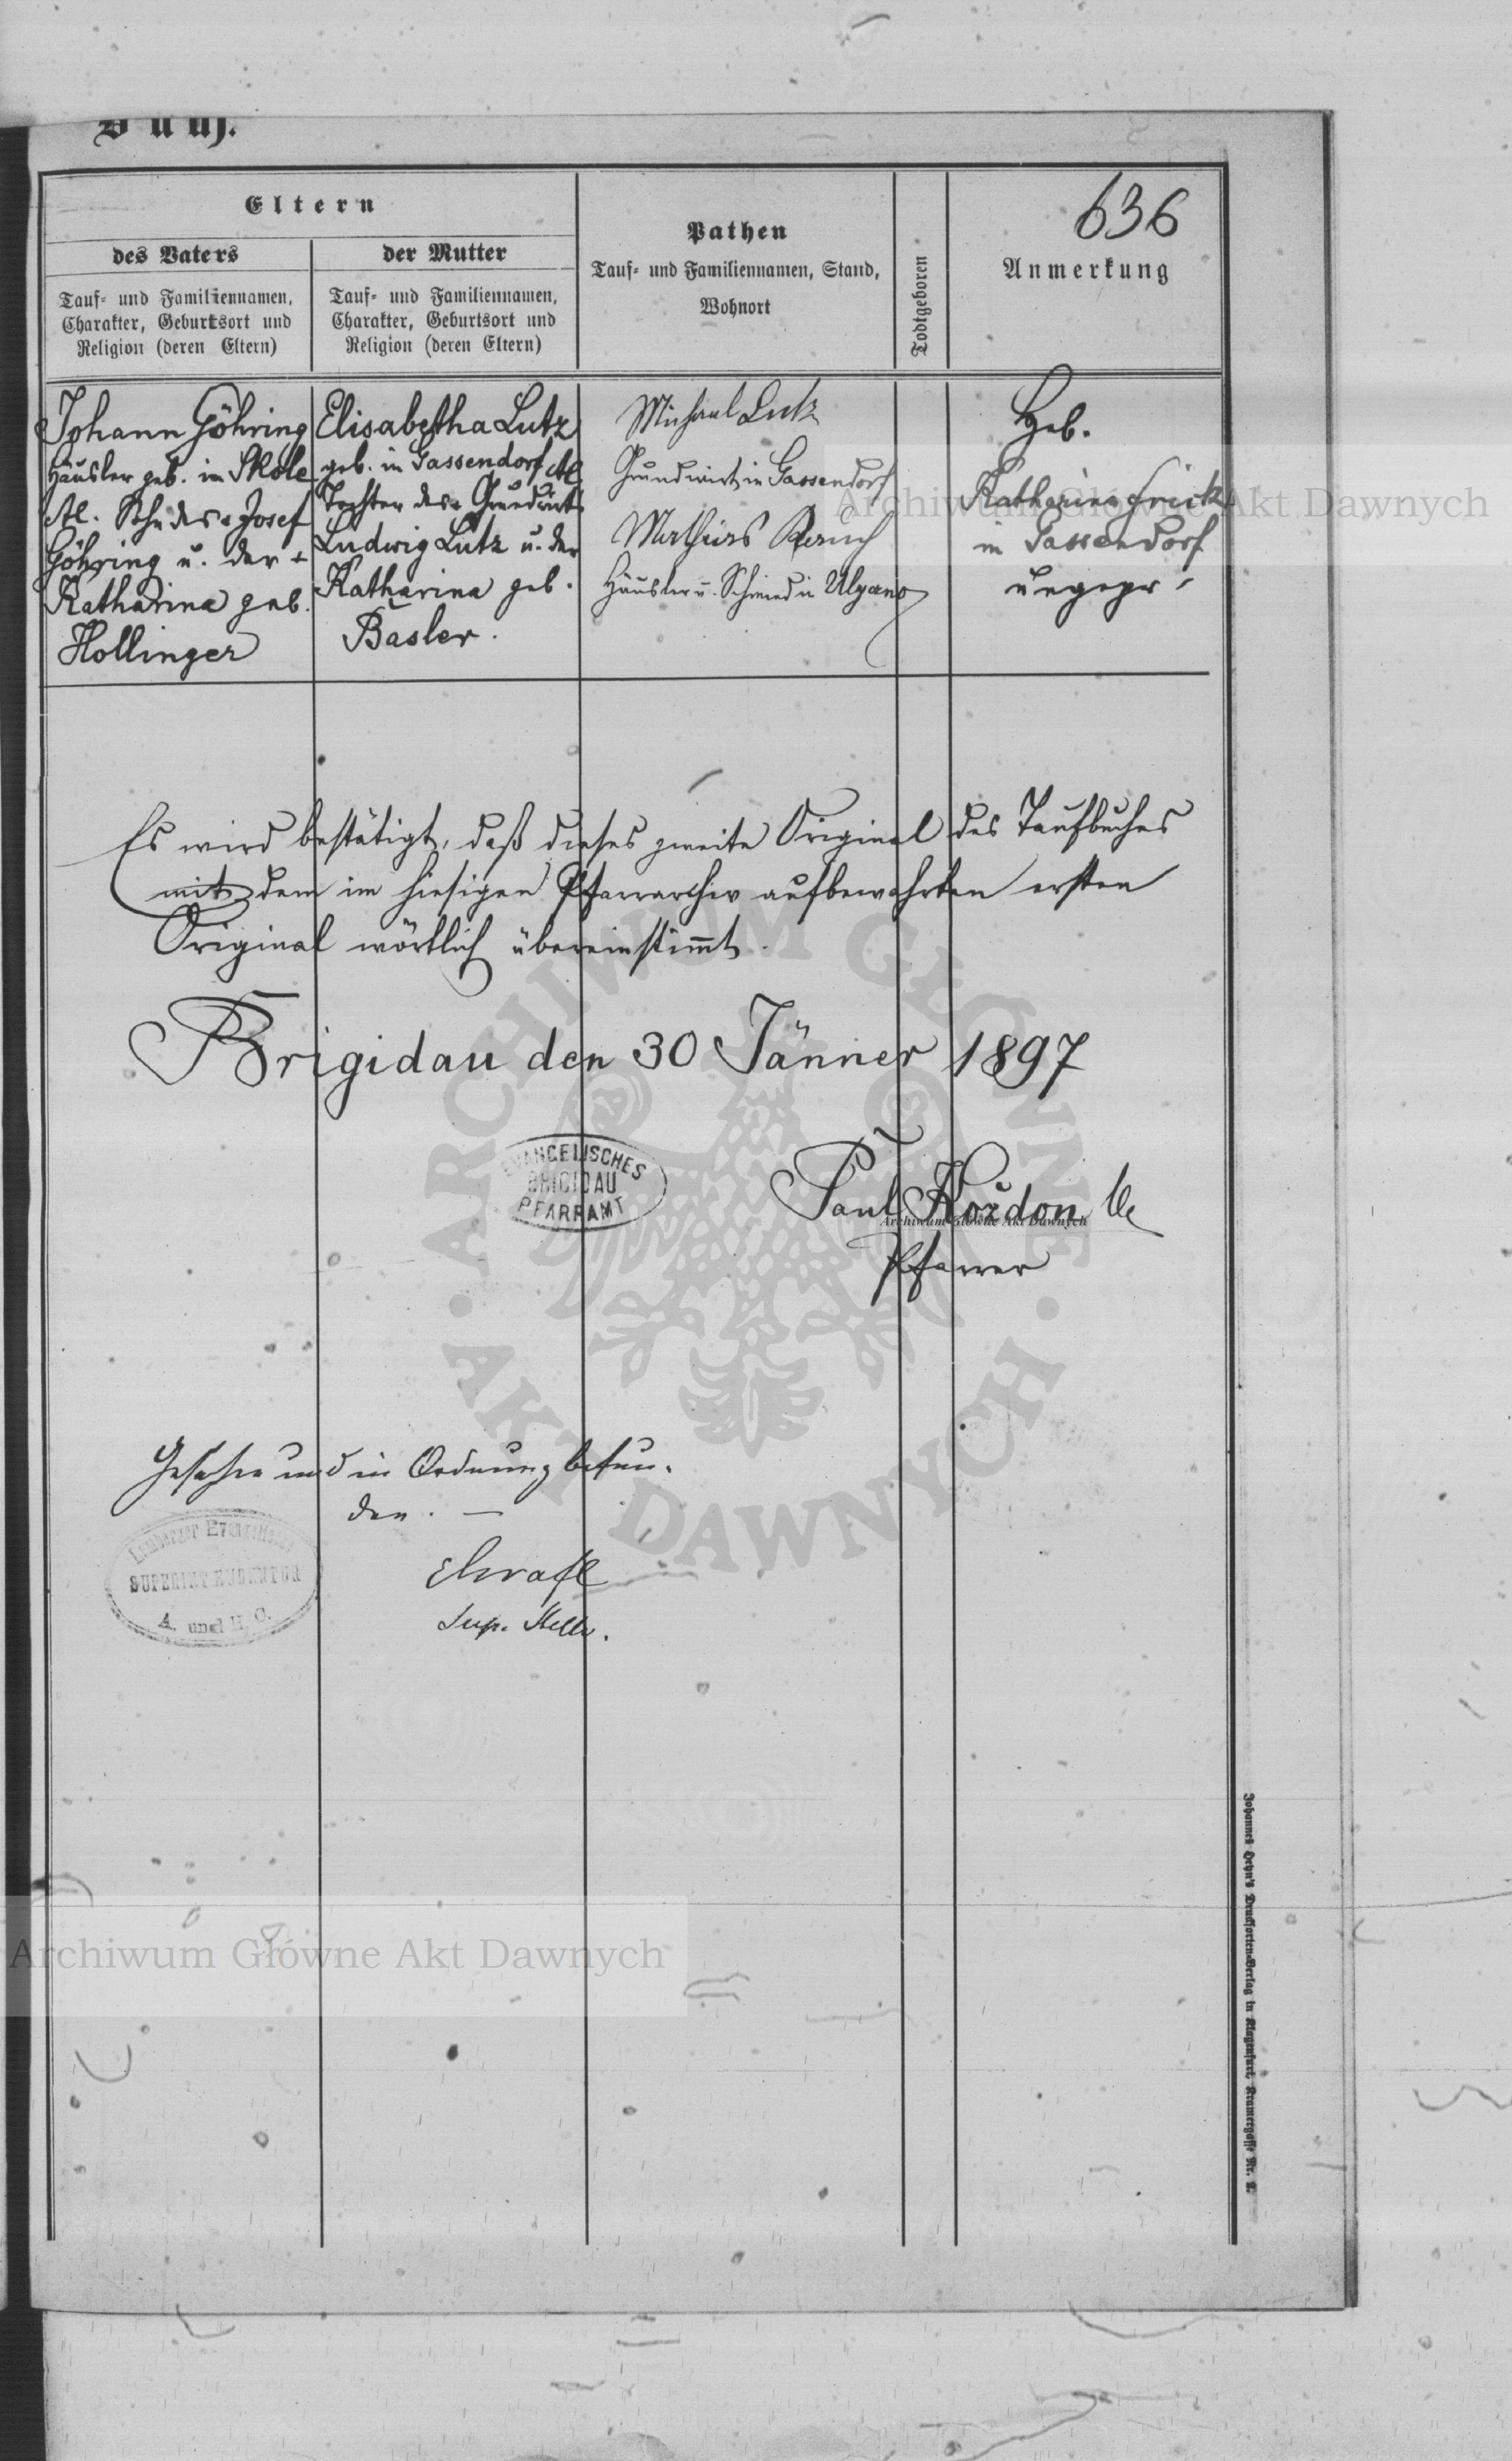 Buch.
636
Eltern
des Vaters
Tauf- und Familiennamen,
Charakter, Geburtsort und
Religion (deren Eltern)
der Mutter
Tauf- und Familiennamen,
Charakter, Geburtsort und
Religion (deren Eltern)
Pathen
Tauf- und Familiennamen, Stand,
Wohnort
Todtgeboren
Anmerkung
Johann Göhring
Häusler geb. in Skole
AC. Sohn des + Josef
Göhring u. der +
Katharina geb.
Hollinger
Elisabetha Lutz
geb. in Gassendorf AC
Tochter des + Grundwirts
Ludwig Lutz u. der
Katharina geb.
Basler.
Michael Lutz
Grundwirt in Gassendorf
Mathias
Häusler u. Schmied in
Heb.
Katharina Frick
in Gassendorf
ungepr.
Es wird bestätigt, daß dieses zweite Original des Taufbuches
mit dem im hiesigen Pfarrarchiv aufbewahrten ersten
Original wörtlich übereinstimmt.
Brigidau den 30 Jänner 1897
EVANGELISCHES
BRIGIDAU
PFARRAMT
Paul Kozdon
Pfarrer
Gesehen und in Ordnung befun-
den. —
Sup. Stellv.
Lemberger Evangelische
SUPERINTENDENTUR
A. und H. C.
Johannes Heyn's Drucksorten-Verlag in Klagenfurt, Kramergasse Nr. 2.
Archiwum Główne Akt Dawnych
Archiwum Główne Akt Dawnych
Archiwum Główne Akt Dawnych
ARCHIWUM GŁÓWNE
AKT DAWNYCH